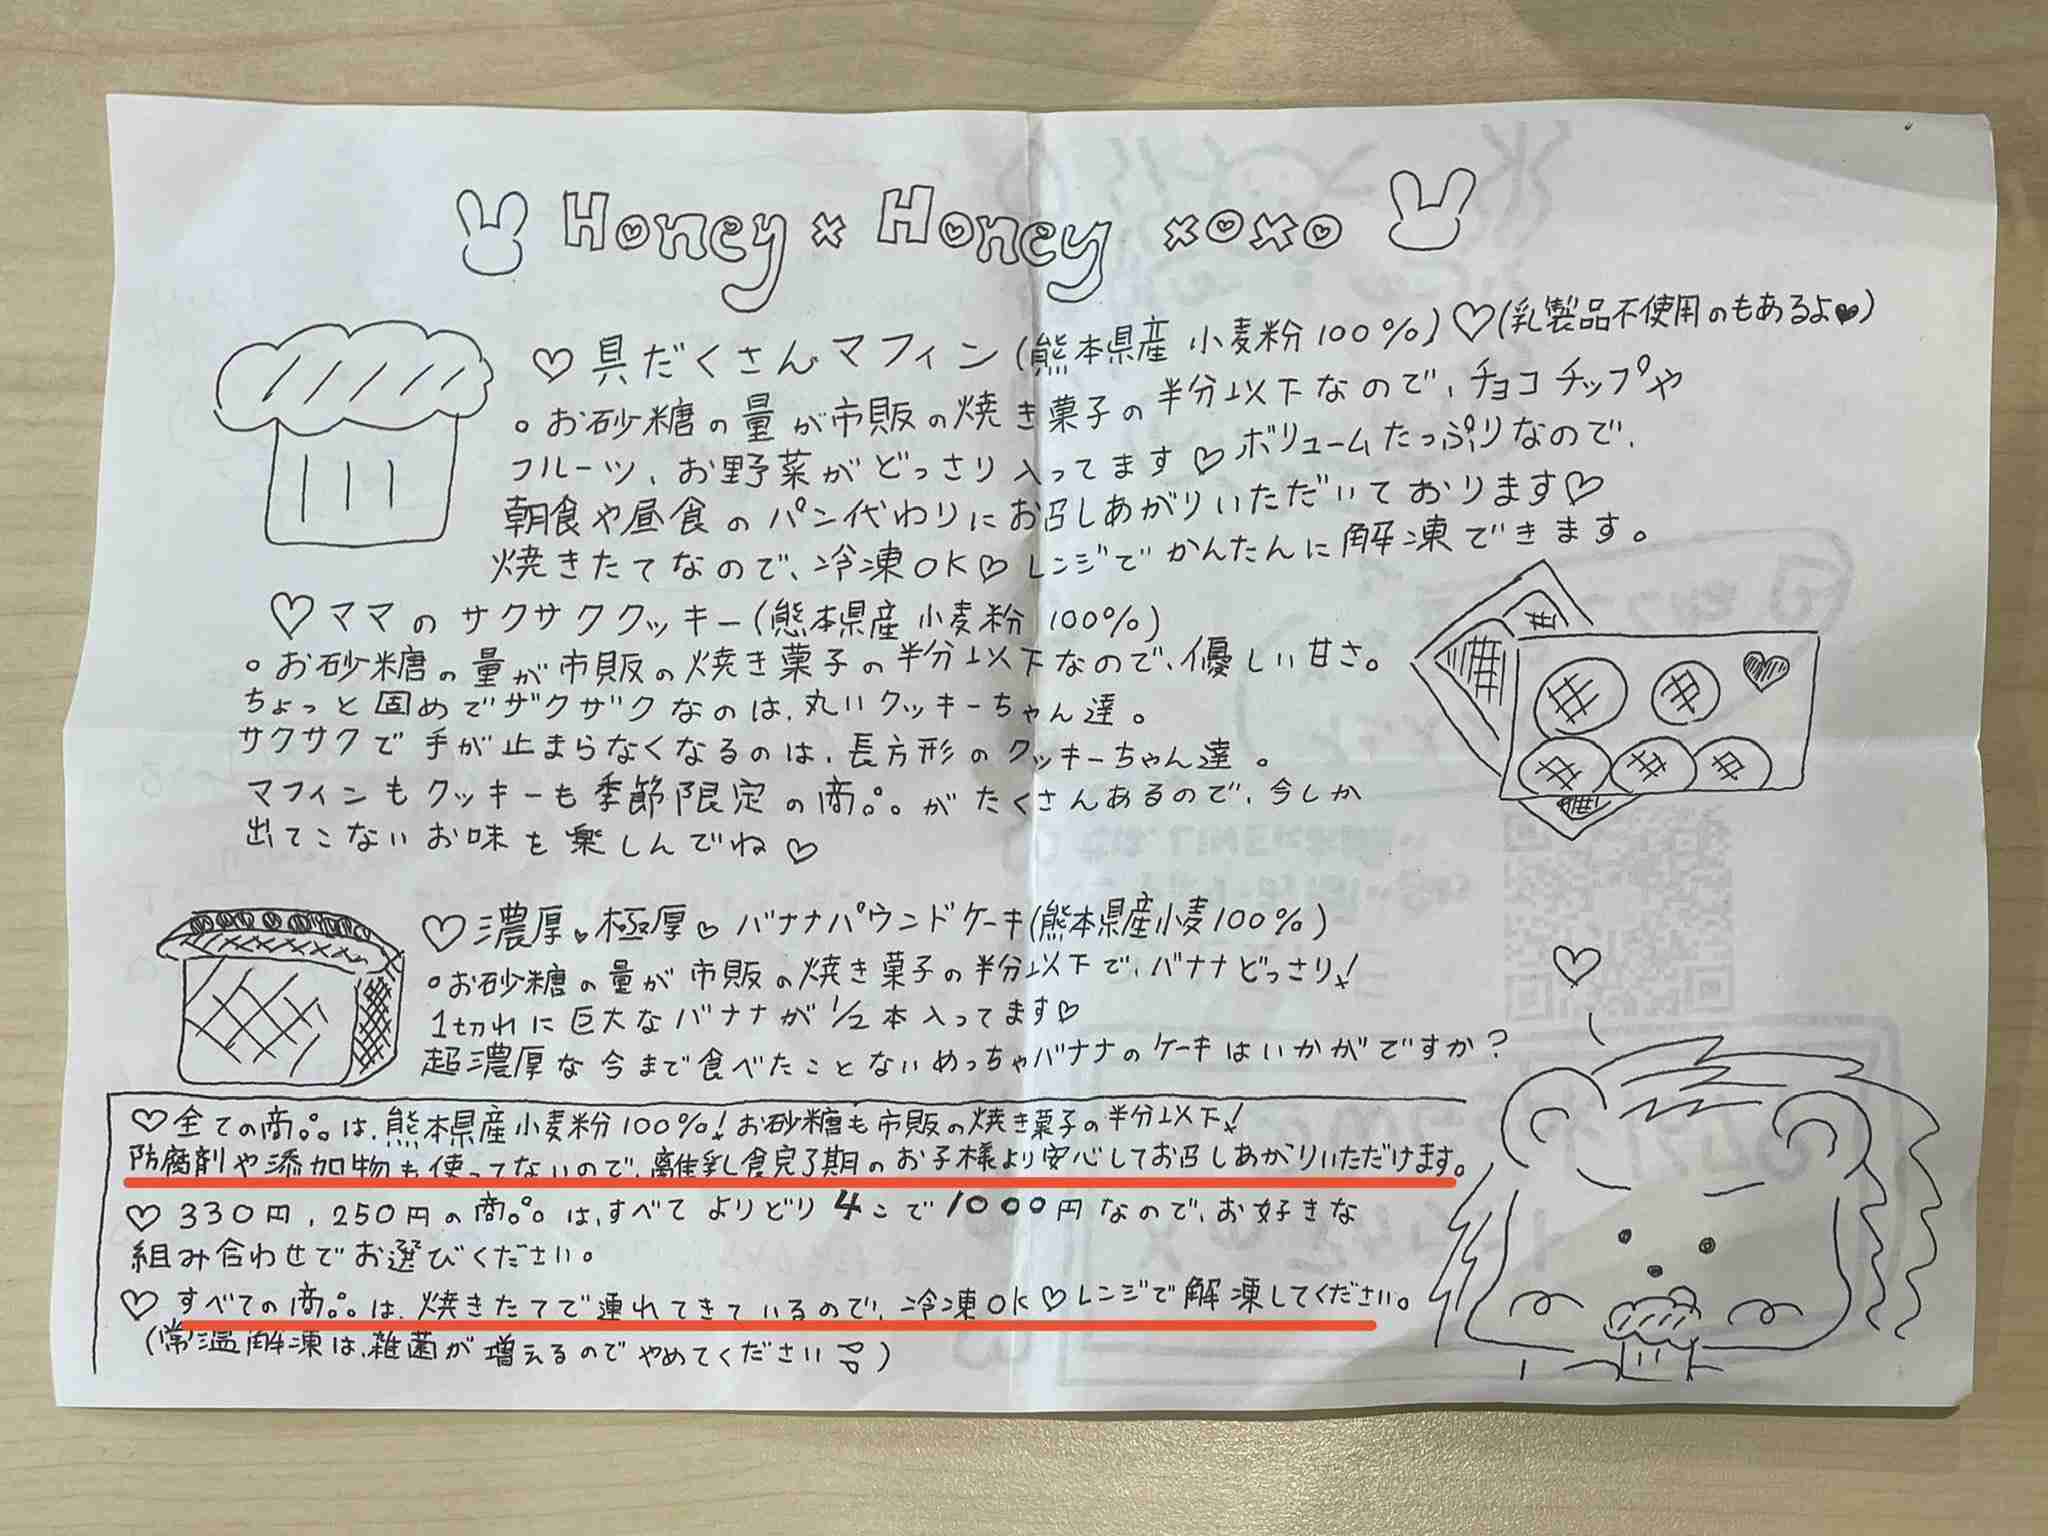 Honey×Honey xoxo
♡具だくさんマフィン(熊本県産 小麦粉100%)♡(乳製品不使用のもあるよ♥)
○お砂糖の量が市販の焼き菓子の半分以下なので、チョコチップや
フルーツ、お野菜がどっさり入ってます♡ボリュームたっぷりなので、
朝食や昼食のパン代わりにお召しあがりいただいております♡
焼きたてなので、冷凍OK♡レンジでかんたんに解凍できます。
♡ママのサクサククッキー(熊本県産 小麦粉 100%)
○お砂糖の量が市販の焼き菓子の半分以下なので、優しい甘さ。
ちょっと固めでザクザクなのは、丸いクッキーちゃん達。
サクサクで手が止まらなくなるのは、長方形のクッキーちゃん達。
マフィンもクッキーも季節限定の商品がたくさんあるので、今しか
出てこないお味を楽しんでね♡
♡濃厚♥極厚♡バナナパウンドケーキ(熊本県産小麦100%)
○お砂糖の量が市販の焼き菓子の半分以下で、バナナどっさり!
1切れに巨大なバナナが1/2本入ってます♡
超濃厚な今まで食べたことないめっちゃバナナのケーキはいかがですか?
♡全ての商品は、熊本県産小麦粉100%!お砂糖も市販の焼き菓子の半分以下!
防腐剤や添加物も使ってないので、離乳食完了期のお子様より安心してお召しあがりいただけます。
♡330円、250円の商品は、すべてよりどり4こで1000円なので、お好きな
組み合わせでお選びください。
♡すべての商品は、焼きたてで連れてきているので、冷凍OK♡レンジで解凍してください。
(常温解凍は、雑菌が増えるのでやめてください)